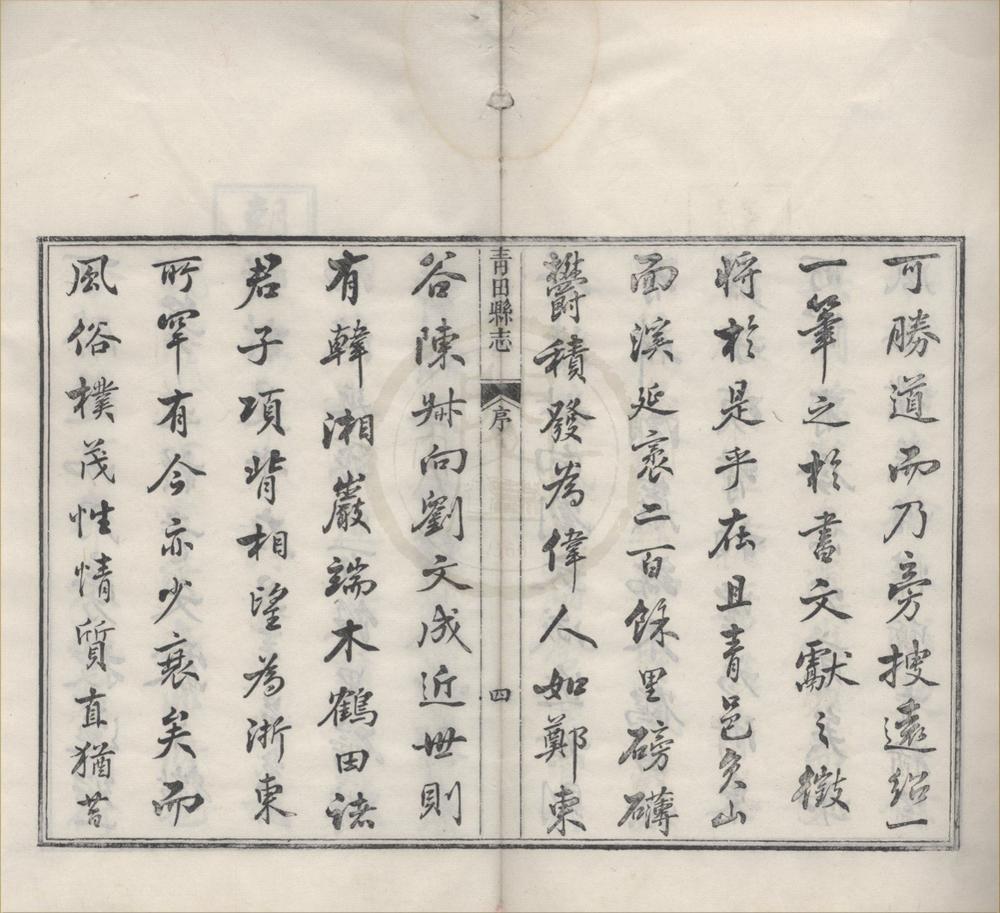 可勝道而乃旁搜遠紹一
一筆之於書文獻之徵
將於是乎在且青邑負山
面溪延袤二百餘里磅礴
鬱積發為偉人如鄭東
青田縣志 序 四
谷陳城向劉文成近世則
有韓湘巖端木鶴田諸
君子項背相望為浙東
所罕有今亦少衰矣而
風俗樸茂性情質直猶昔